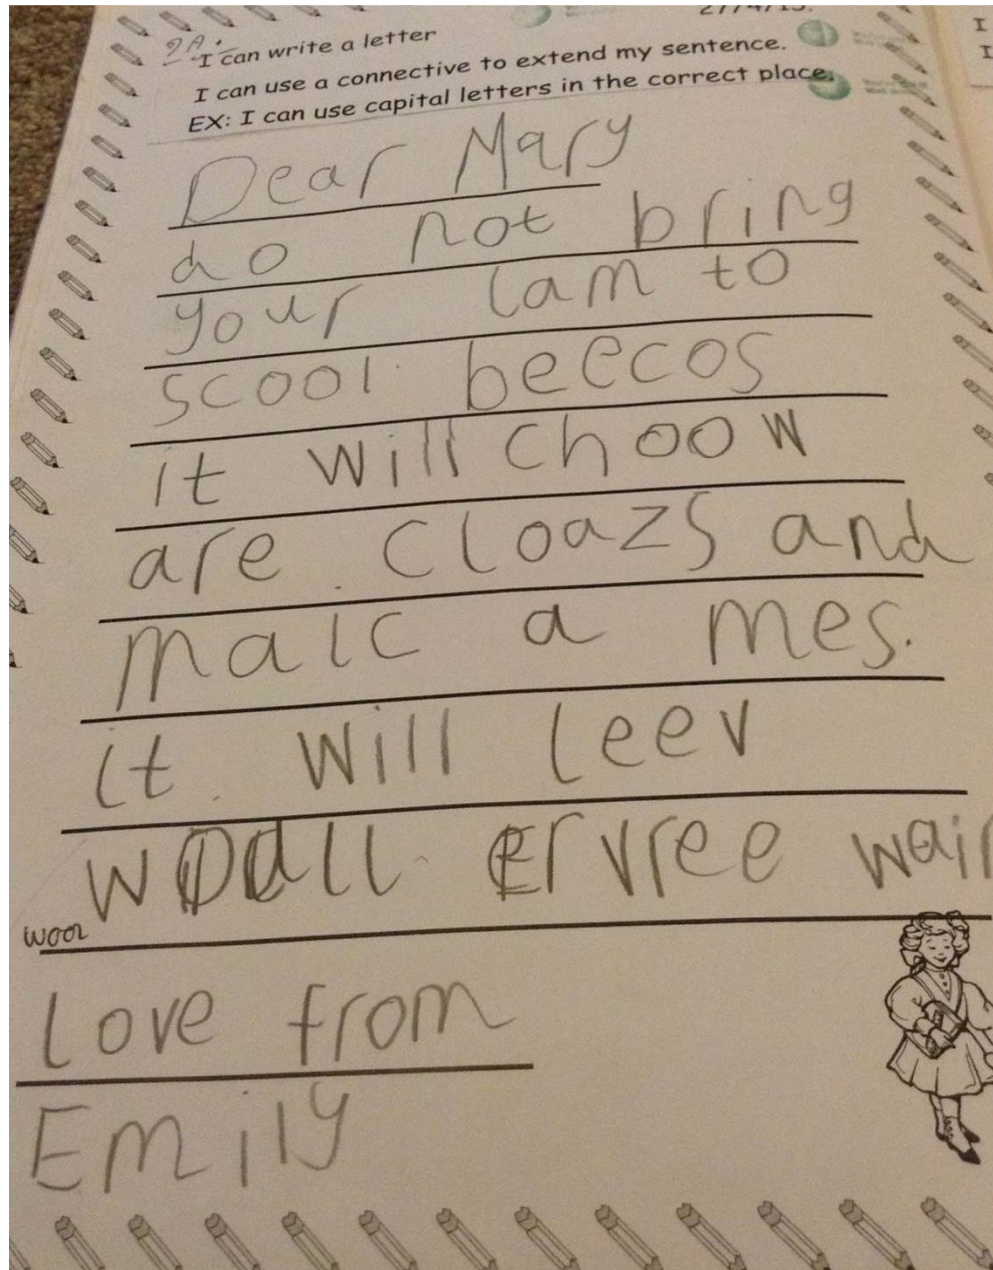 2A:
I can write a letter
I can use a connective to extend my sentence.
EX: I can use capital letters in the correct place.
Dear Mary
do not bring
your lam to
scool beecos
it will choow
are cloazs and
malc a mes.
it will leev
wall ervree wair
wool
Love from
Emily